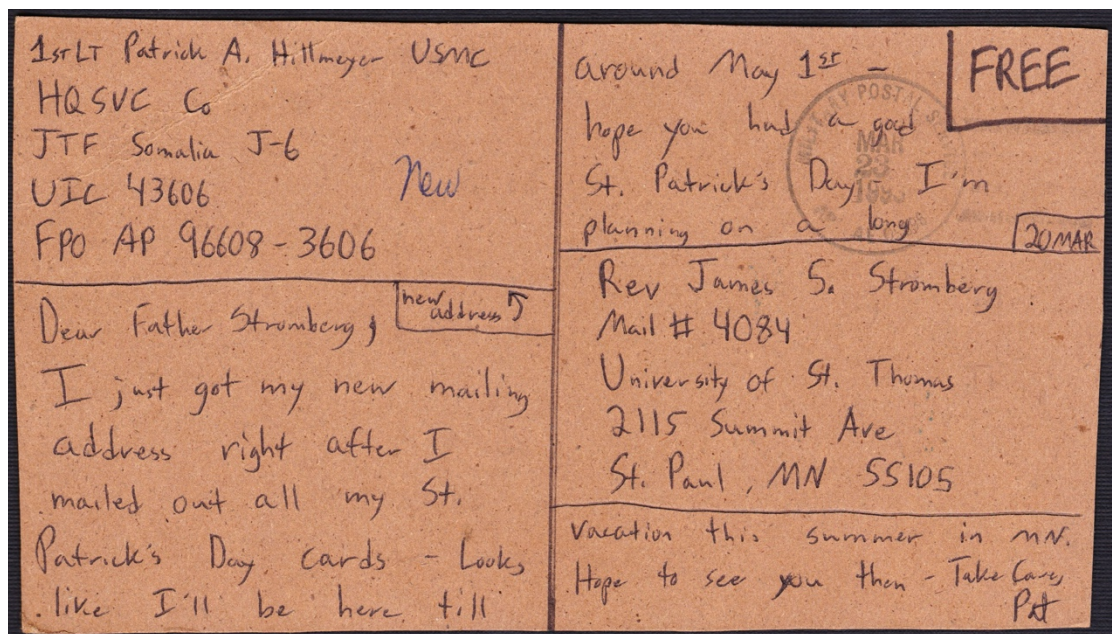 1st LT Patrick A. Hillmeyer USMC
HQSVC Co
JTF Somalia J-6
UIC 43606
FPO AP 96608-3606
New
new
address
Dear Father Stromberg,
I just got my new mailing
address right after I
mailed out all my St.
Patrick's Day cards - Looks
like I'll be here till
around May 1st -
hope you had a good
St. Patrick's Day. I'm
planning on a long
FREE
MILITARY POSTAL
MAR
23
20MAR
Rev James S. Stromberg
Mail # 4084
University of St. Thomas
2115 Summit Ave
St. Paul, MN 55105
vacation this summer in MN.
Hope to see you then - Take Care,
Pat